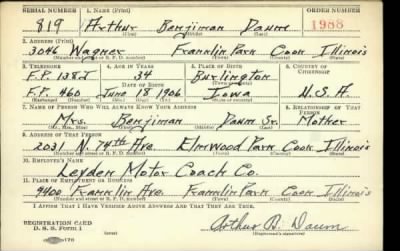 SERIAL NUMBER 1. NAME (Print) ORDER NUMBER
819 Arthur Benjiman Daum 1988
(First) (Middle) (Last)
2. ADDRESS (Print)
3046 Wagner Franklin Park Cook Illinois
(Number and street or R. F. D. number) (Town) (County) (State)
3. TELEPHONE 4. AGE IN YEARS 5. PLACE OF BIRTH 6. COUNTRY OF CITIZENSHIP
F.P. 138J 34 Burlington
DATE OF BIRTH (Town or county)
F.P. 460 June 18 1906 Iowa U.S.A.
(Exchange) (Number) (Mo.) (Day) (Yr.) (State or country)
7. NAME OF PERSON WHO WILL ALWAYS KNOW YOUR ADDRESS 8. RELATIONSHIP OF THAT PERSON
Mrs. Benjiman Daum Sr. Mother
(Mr., Mrs., Miss) (First) (Middle) (Last)
9. ADDRESS OF THAT PERSON
2031 N. 74th Ave. Elmwood Park Cook Illinois
(Number and street or R. F. D. number) (Town) (County) (State)
10. EMPLOYER'S NAME
Leyden Motor Coach Co.
11. PLACE OF EMPLOYMENT OR BUSINESS
9400 Franklin Ave. Franklin Park Cook Illinois
(Number and street or R. F. D. number) (Town) (County) (State)
I AFFIRM THAT I HAVE VERIFIED ABOVE ANSWERS AND THAT THEY ARE TRUE.
REGISTRATION CARD
D. S. S. Form 1 Arthur B. Daum
(Registrant's signature)